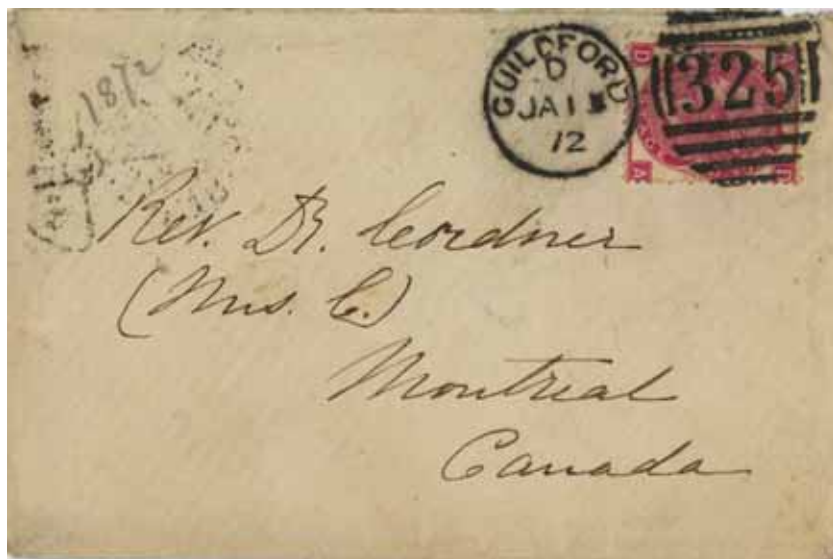 1872
GUILDFORD
D
JA 13
72
325
D
A
D
Rev. Dr. Cordner
(Mrs. C.)
Montreal
Canada